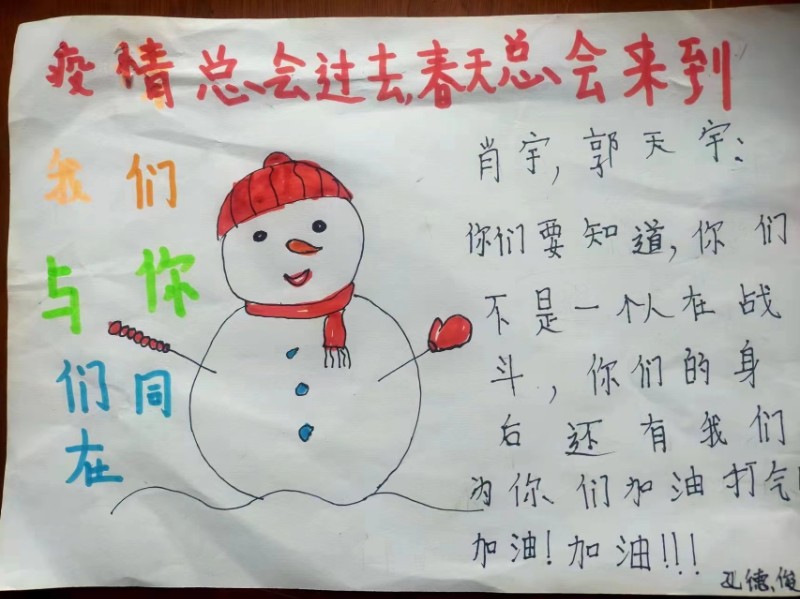 疫情总会过去,春天总会来到
我们
与你
们同
在
肖宇,郭天宇:
你们要知道,你们
不是一个人在战
斗,你们的身
后还有我们
为你们加油打气
加油!加油!!!
孔德俊